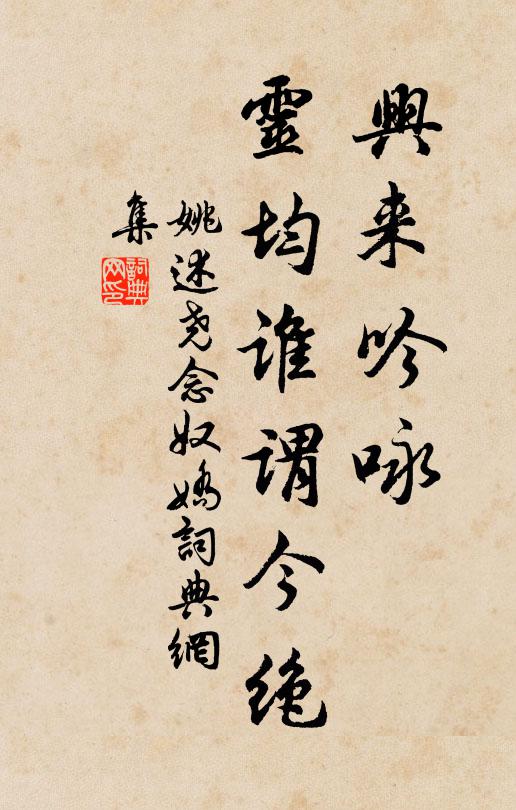 興来吟咏
靈均誰謂今絶
姚述尧念奴嬌詞典網
集
詞典网印